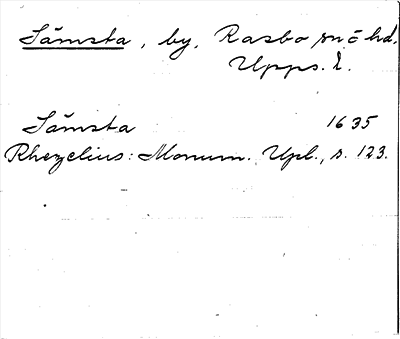 Sämsta, by, Rasbo sn o hd.
Upps. l.
Sämsta 1635
Rhezelius: Monum. Upl., s. 123.